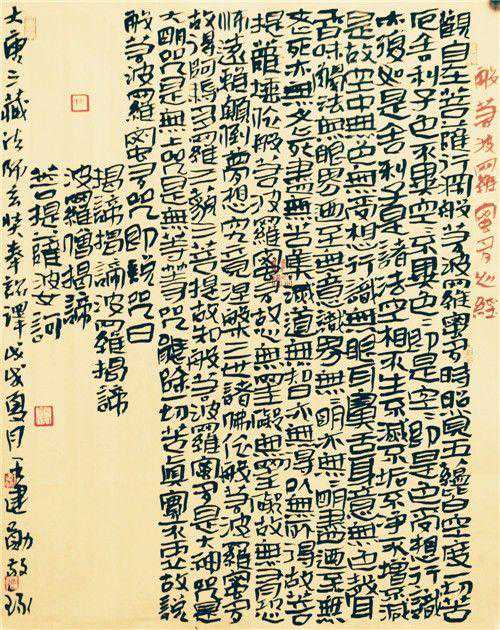 般若波羅蜜多心経
觀自在菩薩行深般若波羅蜜多時照見五緼皆空度一切苦
厄舍利子色不異空空不異色色即是空空即是色受想行識
亦復如是舍利子是諸法空相不生不滅不垢不淨不增不減
是故空中無色無受想行識無眼耳鼻舌身意無色聲
香味觸法無眼界乃至無意識界無無明亦無無明盡乃至無
老死亦無老死盡無苦集滅道無智亦無得以無所得故菩
提薩埵依般若波羅蜜多故心無罣礙無罣礙故無有恐
怖遠離顛倒夢想究竟涅槃三世諸佛依般若波羅蜜多
故得阿耨多羅三藐三菩提故知般若波羅蜜多是大神咒是
大明咒是無上咒是無等等咒能除一切苦真實不虛故說
般若波羅蜜多咒即說咒曰
揭諦揭諦波羅揭諦
波羅僧揭諦
菩提薩婆訶
大唐三藏法師玄奘奉詔譯戊戌夏月王建勛敬録